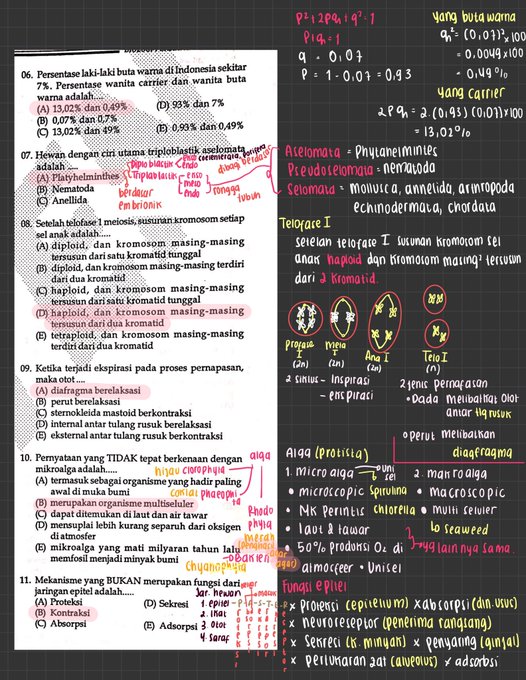 06. Persentase laki-laki buta warna di Indonesia sekitar
7%. Persentase wanita carrier dan wanita buta
warna adalah.....
(A) 13,02% dan 0,49%
(B) 0,07% dan 0,7%
(C) 13,02% dan 49%
(D) 93% dan 7%
(E) 0,93% dan 0,49%
P²+2pq+q²=1
P+q=1
q = 0,07
P = 1-0,07=0,93
yang buta warna
q² = (0,07)²x100
= 0,0049x100
= 0,49%
yang carrier
2Pq = 2.(0,93)(0,07)x100
= 13,02%
07. Hewan dengan ciri utama triploblastik aselomata
adalah ....
(A) Platyhelminthes
(B) Nematoda
(C) Anellida
Diploblastik
ekso
endo
coelenterata, porifera
Triploblastik
ekso
meso
endo
berdasar
embrionik
dibag berdasar
rongga
tubuh
Aselomata = Phytahelmintes
Pseudoselomata = nematoda
Selomata = mollusca, annelida, arthropoda
echinodermata, chordata
08. Setelah telofase 1 meiosis, susunan kromosom setiap
sel anak adalah.....
(A) diploid, dan kromosom masing-masing
tersusun dari satu kromatid tunggal
(B) diploid, dan kromosom masing-masing terdiri
dari dua kromatid
(C) haploid, dan kromosom masing-masing
tersusun dari satu kromatid tunggal
(D) haploid, dan kromosom masing-masing
tersusun dari dua kromatid
(E) tetraploid, dan kromosom masing-masing
terdiri dari dua kromatid
Telofase I
setelah telofase I susunan kromosom sel
anak haploid dan kromosom masing² tersusun
dari 2 kromatid.
Profase
I
(2n)
Meta
I
(2n)
Ana I
(2n)
Telo I
(n)
09. Ketika terjadi ekspirasi pada proses pernapasan,
maka otot ....
(A) diafragma berelaksasi
(B) perut berelaksasi
(C) sternokleida mastoid berkontraksi
(D) internal antar tulang rusuk berelaksasi
(E) eksternal antar tulang rusuk berkontraksi
2 siklus - Inspirasi
- ekspirasi
2 jenis pernafasan
• Dada melibatkat Otot
antar tlg rusuk
• perut melibatkan
diagfragma
10. Pernyataan yang TIDAK tepat berkenaan dengan
mikroalga adalah.....
(A) termasuk sebagai organisme yang hadir paling
awal di muka bumi
(B) merupakan organisme multiseluler
(C) dapat ditemukan di laut dan air tawar
(D) mensuplai lebih kurang separuh dari oksigen
di atmosfer
(E) mikroalga yang mati milyaran tahun lalu
memfosil menjadi minyak bumi
alga
hijau clorophyta
coklat phaeophyta
Rhodo
phyta
merah
(penghasil agar agar)
bakteri
Chyanophyta
Alga (protista)
1. micro alga
uni
sel
• microscopic Spirulina
• MK Perintis chlorella
• laut & tawar
• 50% produksi O₂ di
atmosfeer • Unisel
2. makroalga
• macroscopic
• multi seluler
↳ seaweed
yg lainnya sama.
11. Mekanisme yang BUKAN merupakan fungsi dari
jaringan epitel adalah.....
(A) Proteksi
(B) Kontraksi
(C) Absorpsi
(D) Sekresi
(E) Adsorpsi
Jar. hewan
1. epitel - P-A-S-T-E-R
2. ikat
3. otot
4. saraf
Fungsi epitel
x Proteksi (epitelium) x absorpsi (din.usus)
x neuroreseptor (penerima rangsang)
x Sekresi (k.minyak) x penyaring (ginjal)
x pertukaran zat (alveolus) x adsorbsi